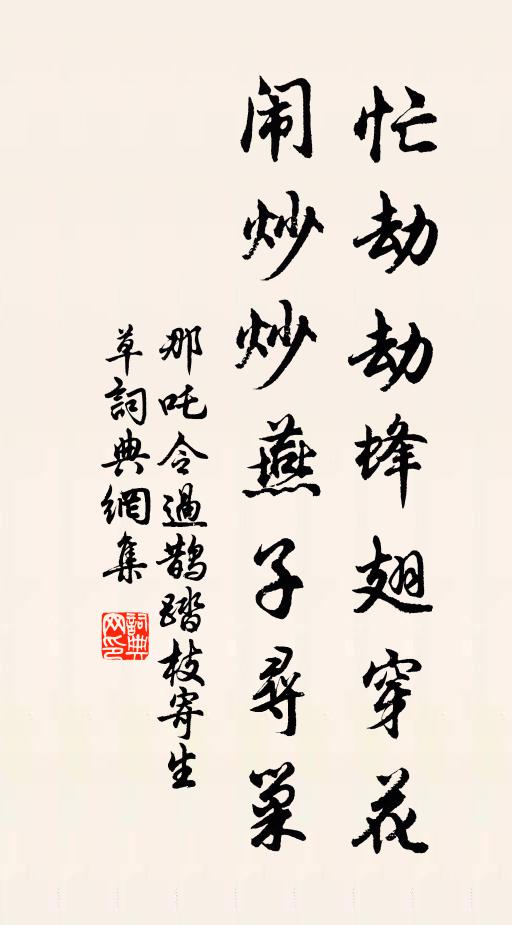 忙劫劫蜂翅穿花
闹炒炒燕子尋巢
那吒令過鹊踏枝寄生
草詞典網集
詞典
网印